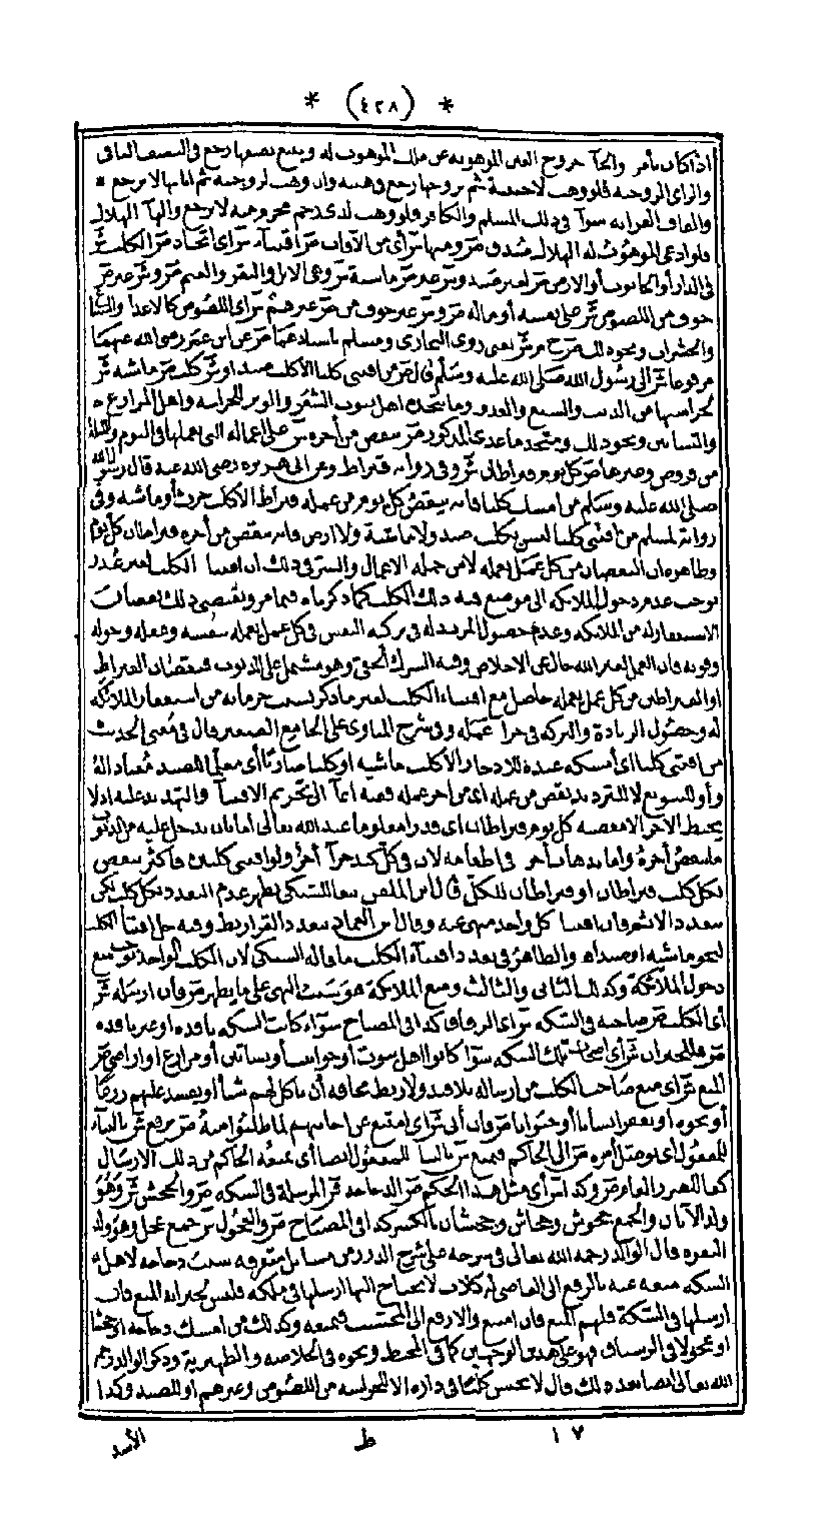 * (٤٢٨) *
اذا كان بأمر والخآ خروج العين الموهوبة عن ملك الموهوب له وببيع نصفها رجع في النصف الباقي
والزاى الزوجية فلو وهب لاجنبية ثم تزوجها رجع في هبته وان وهب لزوجته ثم ابانها لا يرجع *
والقاف القرابة سوآ في ذلك المسلم والكافر فلو وهب لذى رحم محرم وهبة لا يرجع والهآ الهلاك
فلو ادعى الموهوب له الهلاك صدق ومنها ش أى من الآفات ص اقتناء ش أى اتخاذ ص الكلب ش
في الدار أو الحانوت أو الارض ص لغير صيد و ش غير ص ماشية ش وهي الابل والبقر والغنم ص و ش غير ص
خوف من اللصوص ش على نفسه أو ماله ص و ش غير خوف من ص غيرهم ش أى اللصوص كالاعدا والسباع
والحشرات ونحو ذلك ص خ م ش يعنى روى البخارى ومسلم باسنادهما ص عن ابن عمر رضى الله عنهما
مرفوعا ش الى رسول الله صلى الله عليه وسلم قال ص من اقتنى كلبا الا كلب صيد او ش كلب ص ماشية ش
لحراستها من الذئب والسبع والعدو وما يتخذه اهل بيوت الشعر والوبر للحراسة واهل المزارع *
والبساتين ونحو ذلك ويتخذ ماعدى المذكور ص نقص من أجره ش على اعماله التى يعملها في اليوم والليلة
من فروض وغيرها ص كل يوم قيراطان ش وفي رواية قيراط وعن ابى هريرة رضى الله عنه قال رسول الله
صلى الله عليه وسلم من امسك كلبا فانه ينقص كل يوم من عمله قيراط الا كلب حرث أو ماشية وفي
رواية لمسلم من اقتنى كلبا ليس بكلب صيد ولا ماشية ولا ارض فانه ينقص من أجره قيراطان كل يوم
وظاهره ان النقصان من كل عمل يعمله لا من جملة الاعمال والسر في ذلك ان اقتنا الكلب لغير عذر
يوجب عدم دخول الملائكة الى موضع فيه ذلك الكلب كما ذكرناه فيما مر ويقتضى ذلك نقصان
الاستغفار له من الملائكة وعدم حصول المزيد له في بركة النفس في كل عمل يعمله بنفسه وعقله وحوله
وقوته فان العمل لغير الله خال عن الاخلاص وفيه الشرك الخفى وهو مشتمل على الذنوب فنقصان القيراط
او القيراطان من كل عمل يعمله حاصل مع اقتناء الكلب لغير ما ذكر بسبب حرمانه من استغفار الملائكة
له وحصول الزيادة والبركة في جزآ عمله وفي شرح المناوى على الجامع الصغير قال في معنى الحديث
من اقتنى كلبا اى أمسكه عنده للادخار الا كلب ماشية او كلبا ضاريا أى معلما للصيد معتادا له
وأو للتنويع لا للترديد نقص من عمله اى من اجر عمله ففيه ايمآ الى تحريم الاقتنآ والتهديد عليه اذ لا
يحبط الآجر الا معصية كل يوم قيراطان اى قدرا معلوما عند الله تعالى اما بان يدخل عليه من الذنوب
ما ينقص أجره واما بذهاب أجر في اطعامه لان في كل كبد حرآ أجر ولو اقتنى كلبين فأكثر نقص
بكل كلب قيراطان او قيراطان للكل قال ابن الملقن تبعا للسبكى يظهر عدم التعدد بكل كلب لكن
يتعدد الاثم فان اقتنا كل واحد منهى عنه وقال ابن العماد يتعدد القراريط وفيه حل اقتنآ الكلب
لنحو ماشية او صيد اهـ والظاهر في تعدد اقتنآء الكلب ما قاله السبكى لان الكلب الواحد يوجب منع
دخول الملائكة وكذلك الثانى والثالث ومنع الملائكة هو سبب النهى على ما يظهر ص فان ارسله ش
أى الكلب ص صاحبه في السكة ش أى الزقاق كذا في المصباح سوآء كانت السكة نافذة او غير نافذة
ص فللجيران ش أى اصحاب تلك السكة سوآ كانوا اهل بيوت أو حوانيت أو بساتين أو مزارع او اراضى ص
المنع ش اى منع صاحب الكلب من ارساله بلا قيد ولا ربط مخافة أن يأكل لهم شيأ او يفسد عليهم زرعا
أو نحوه أو يعقر انسانا أو حيوانا ص فان أبى ش اى امتنع عن اجابتهم لما طلبوا منه ص يرفع ش بالبنآء
للمفعول اى يوصل أمره ص الى الحاكم فيمنع ش بالبنا للمفعول ايضا أى يمنعه الحاكم من ذلك الارسال
كفا للضرر العام ص وكذا ش أى مثل هذا الحكم ص الدجاجة ش المرسلة في السكة ص والجحش ش وهو
ولد الاتان والجمع جحوش وجحاش وجحشان بالكسر كذا في المصباح ص والعجول ش جمع عجل وهو ولد
البقرة قال الوالد رحمه الله تعالى في شرحه على شرح الدرر من مسائل متفرقة سيبت دجاجة لاهل
السكة منعه عنه بالرفع الى القاضى له كلاب لا يحتاج اليها ارسلها في ملكه فليس لجيرانه المنع فان
ارسلها في السكة فلهم المنع فان امتنع والا رفع الى المحتسب فيمنعه وكذلك من امسك دجاجة او جحشا
او عجولا في الرستاق فهو على هذين الوجهين كما في المحيط ونحوه في الخلاصة والظهيرية وذكر الوالد رحمه
الله تعالى ايضا بعد ذلك قال لا يحبس كلبا في داره الا لحراسة من اللصوص وغيرهم او للصيد وكذا
١٧ ط الأسد